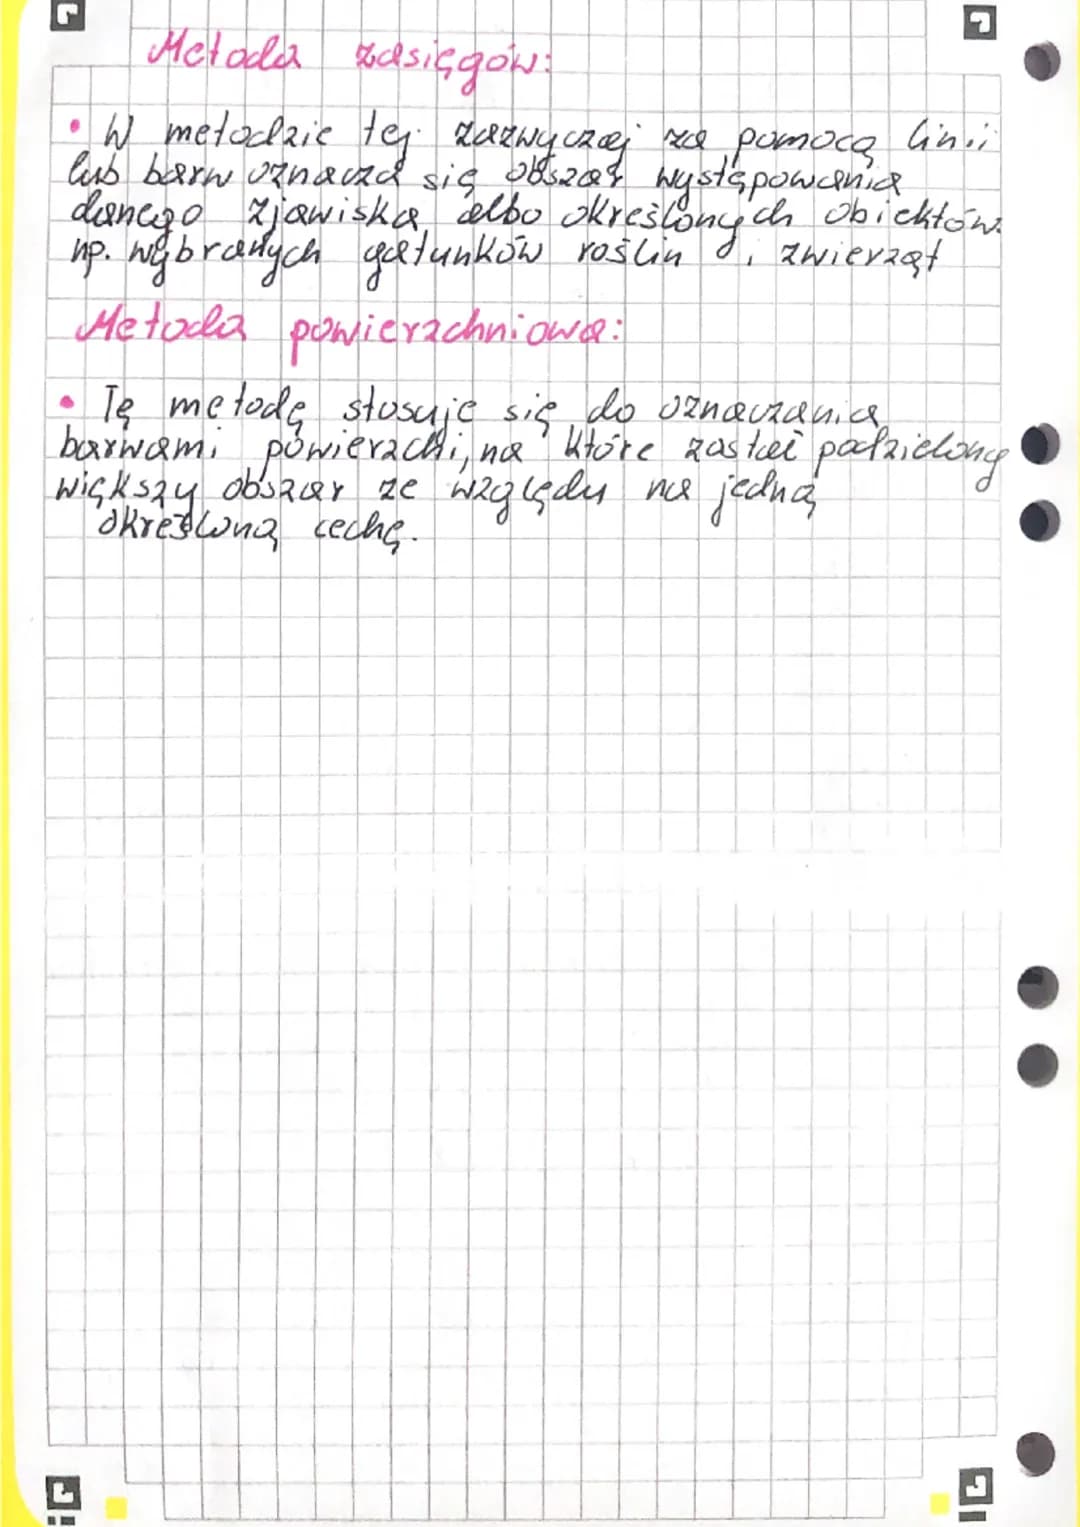 Metoda zasięgów:
• W metodzie tej zazwyczaj za pomocą linii
lub barw oznacza się obszar występowania
danego zjawiska albo określonych obiektów.
np. wybranych gatunków roślin i zwierząt
Metoda powierzchniowa:
• Tę metodę stosuje się do oznaczania
barwami powierzchi, na które został podzielony
większy obszar ze względu na jedną
określoną cechę.